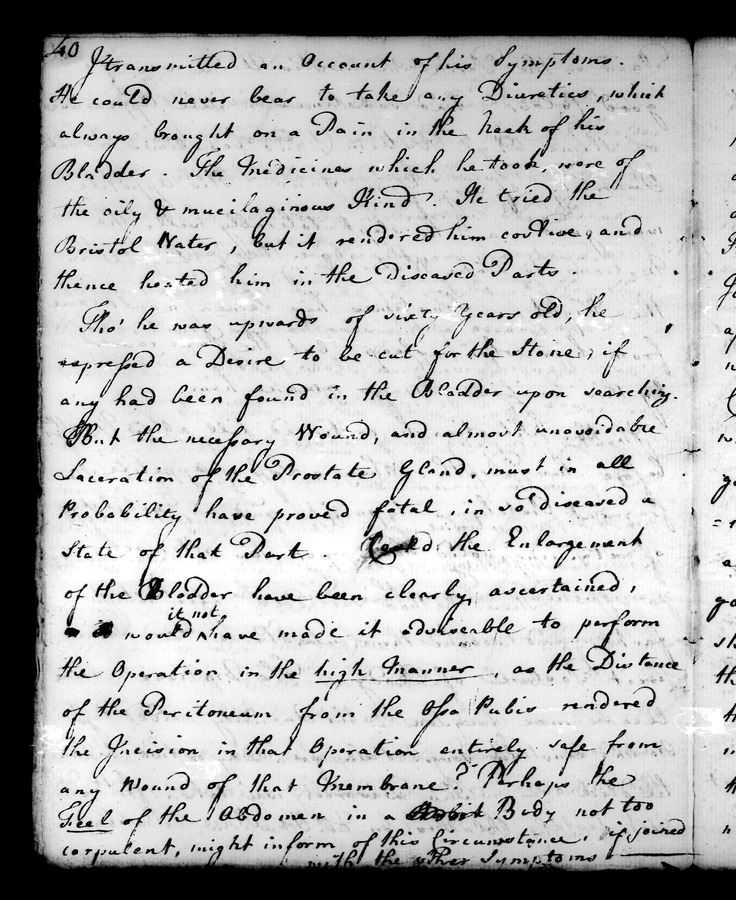 40
I transmitted an Account of his Symptoms.
He could never bear to take any Diuretics, which
always brought on a Pain in the Neck of his
Bladder. The Medicines which he took, were of
the oily & mucilaginous Kind. He tried the
Bristol Water, but it rendered him costive, and
thence heated him in the diseased Parts.
Tho' he was upwards of sixty Years old, he
expressed a Desire to be cut for the Stone, if
any had been found in the Bladder upon searching.
But the necessary Wound, and almost unavoidable
Laceration of the Prostate Gland, must in all
Probability have proved fatal, in so diseased a
State of that Part. Could the Enlargement
of the Bladder have been clearly ascertained,
it not
would have made it adviseable to perform
the Operation in the high Manner, as the Distance
of the Peritoneum from the Ossa Pubis rendered
the Incision in that Operation entirely safe from
any Wound of that Membrane? Perhaps the
Feel of the Abdomen in a Body not too
corpulent, might inform of this Circumstance, if joined
with the other Symptoms.